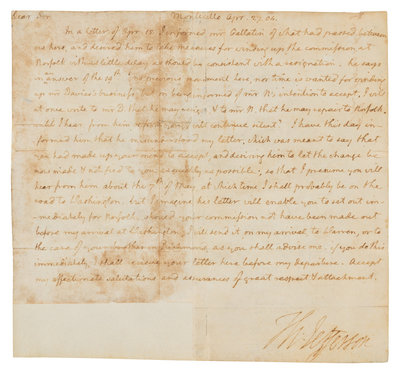 Dear Sir Monticello Apr. 27. 06.
In a letter of Apr. 15. I informed mr Gallatin of what had passed between
us here, and desired him to take measures for winding up the commission at
Norfolk with as little delay as should be consistent with a resignation. he says
in answer of the 19th 'no previous movement here, nor time is wanted for winding
up mr Davies's business, but on being informed of mr N's intention to accept, I will
at once write to mr D. that he may resign & to mr N. that he may repair to Norfolk.
until I hear from you I will continue silent.' I have this day in
formed him that he misunderstood my letter, which was meant to say that
you had made up your mind to accept, and desiring him to let the change be
now made & notified to you as quickly as possible; so that I presume you will
hear from him about the 7th of May at which time I shall probably be on the
road to Washington. but I imagine his letter will enable you to set out im-
mediately for Norfolk, should your commission not have been made out
before my arrival at Washington, I will send it on my arrival, to Warren, or to
the care of your brother in Richmond, as you shall advise me. if you do this
immediately I shall recieve your letter here before my departure. Accept
my affectionate salutations and assurances of great respect & attachment.
Th: Jefferson